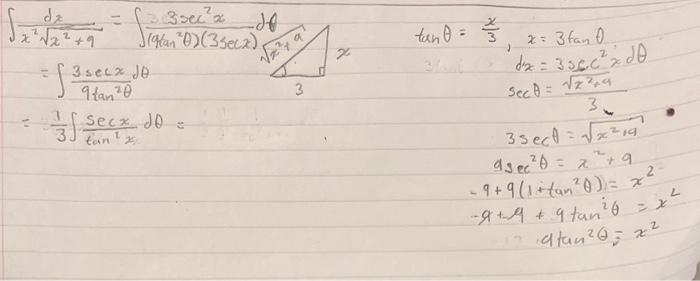 ∫ dx / (x²√(x² + 9)) = ∫ 3sec²x / ((9tan²θ)(3secx)) dθ
= ∫ 3secx dθ / 9tan²θ
= 1/3 ∫ secx / tan²x dθ =
√(x²+9)
x
3
tanθ = x/3, x = 3tanθ
dx = 3sec²x dθ
secθ = √(x²+9) / 3
3secθ = √(x²+9)
9sec²θ = x² + 9
-9+9(1+tan²θ) = x²
-9+9+9tan²θ = x²
9tan²θ = x²